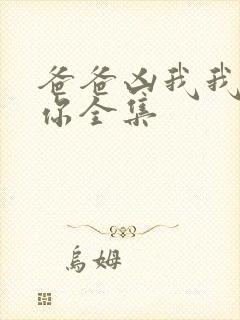 爸爸凶我我
你全集
烏姆